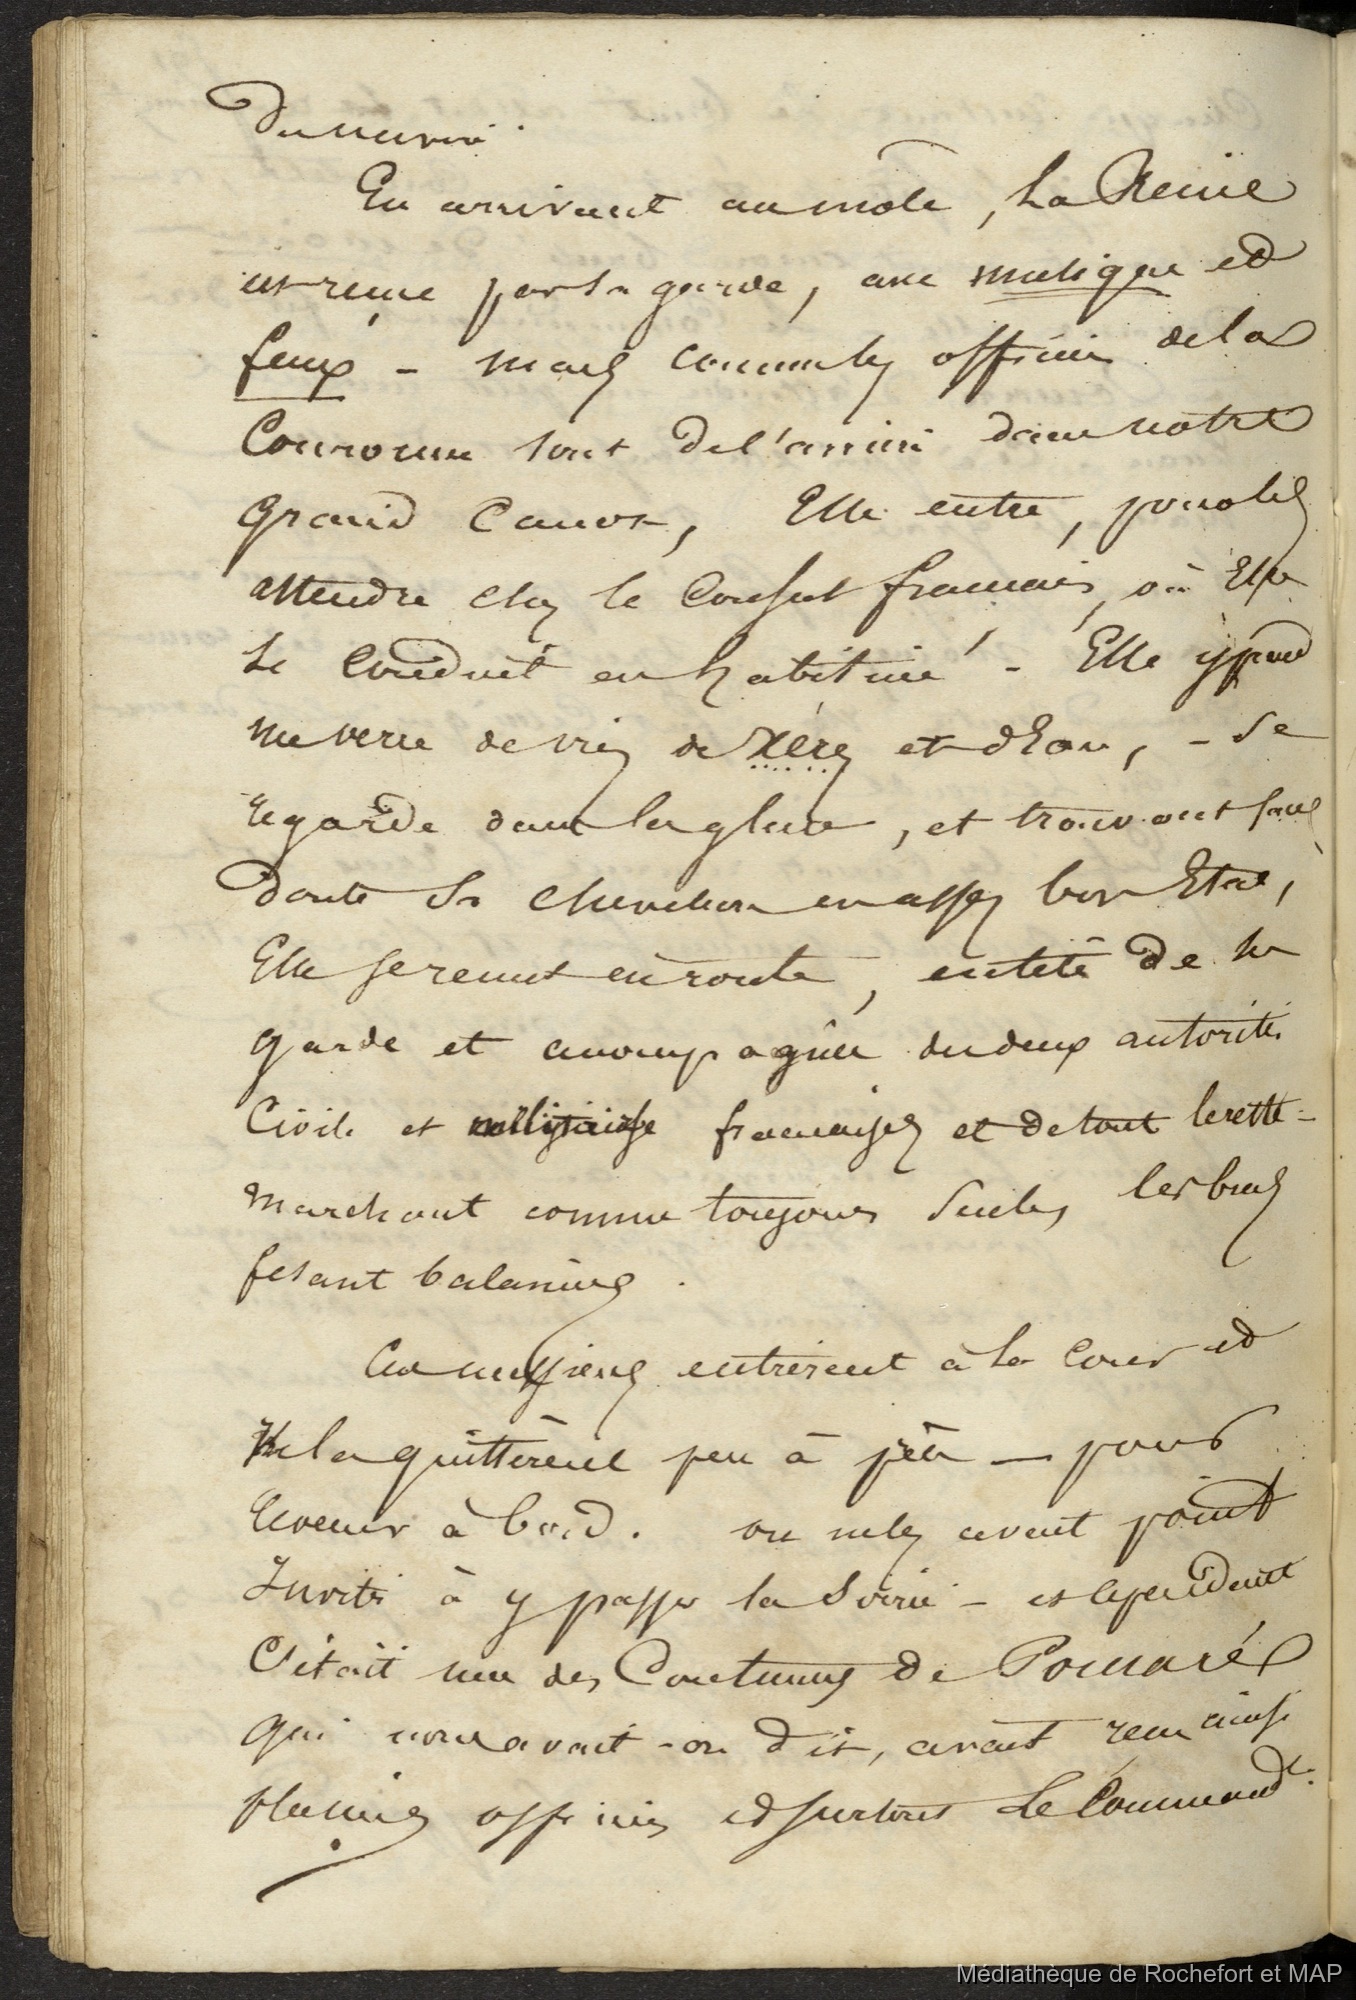 du navire.
En arrivant au môle, la Reine
est reçue par la garde, avec musique et
feux - mais comme les officiers de la
Couronne sont de l'arrière dans notre
grand Canot, Elle entre, pour les
attendre chez le Consul français, où Elle
se conduit en habituée - Elle y prend
un verre de vin de Xérès et d'Eau, - se
regarde dans la glace, et trouvant sans
doute sa chevelure en assez bon Etat,
Elle se remet en route, en tête de sa
garde et accompagnée des deux autorités
Civile et militaire françaises et de tout le reste -
marchant comme toujours seule, les bras
fesant balanciers.
Ces messieurs entrèrent à la Cour et
la quittèrent peu à peu — pour
revenir à bord. on ne les avait point
Invités à y passer la soirée - et cependant
C'était une des Coutumes de Pomaré
qui nous avait-on dit, avait reçu ainsi
plusieurs officiers et surtout le Commandt.
Médiathèque de Rochefort et MAP